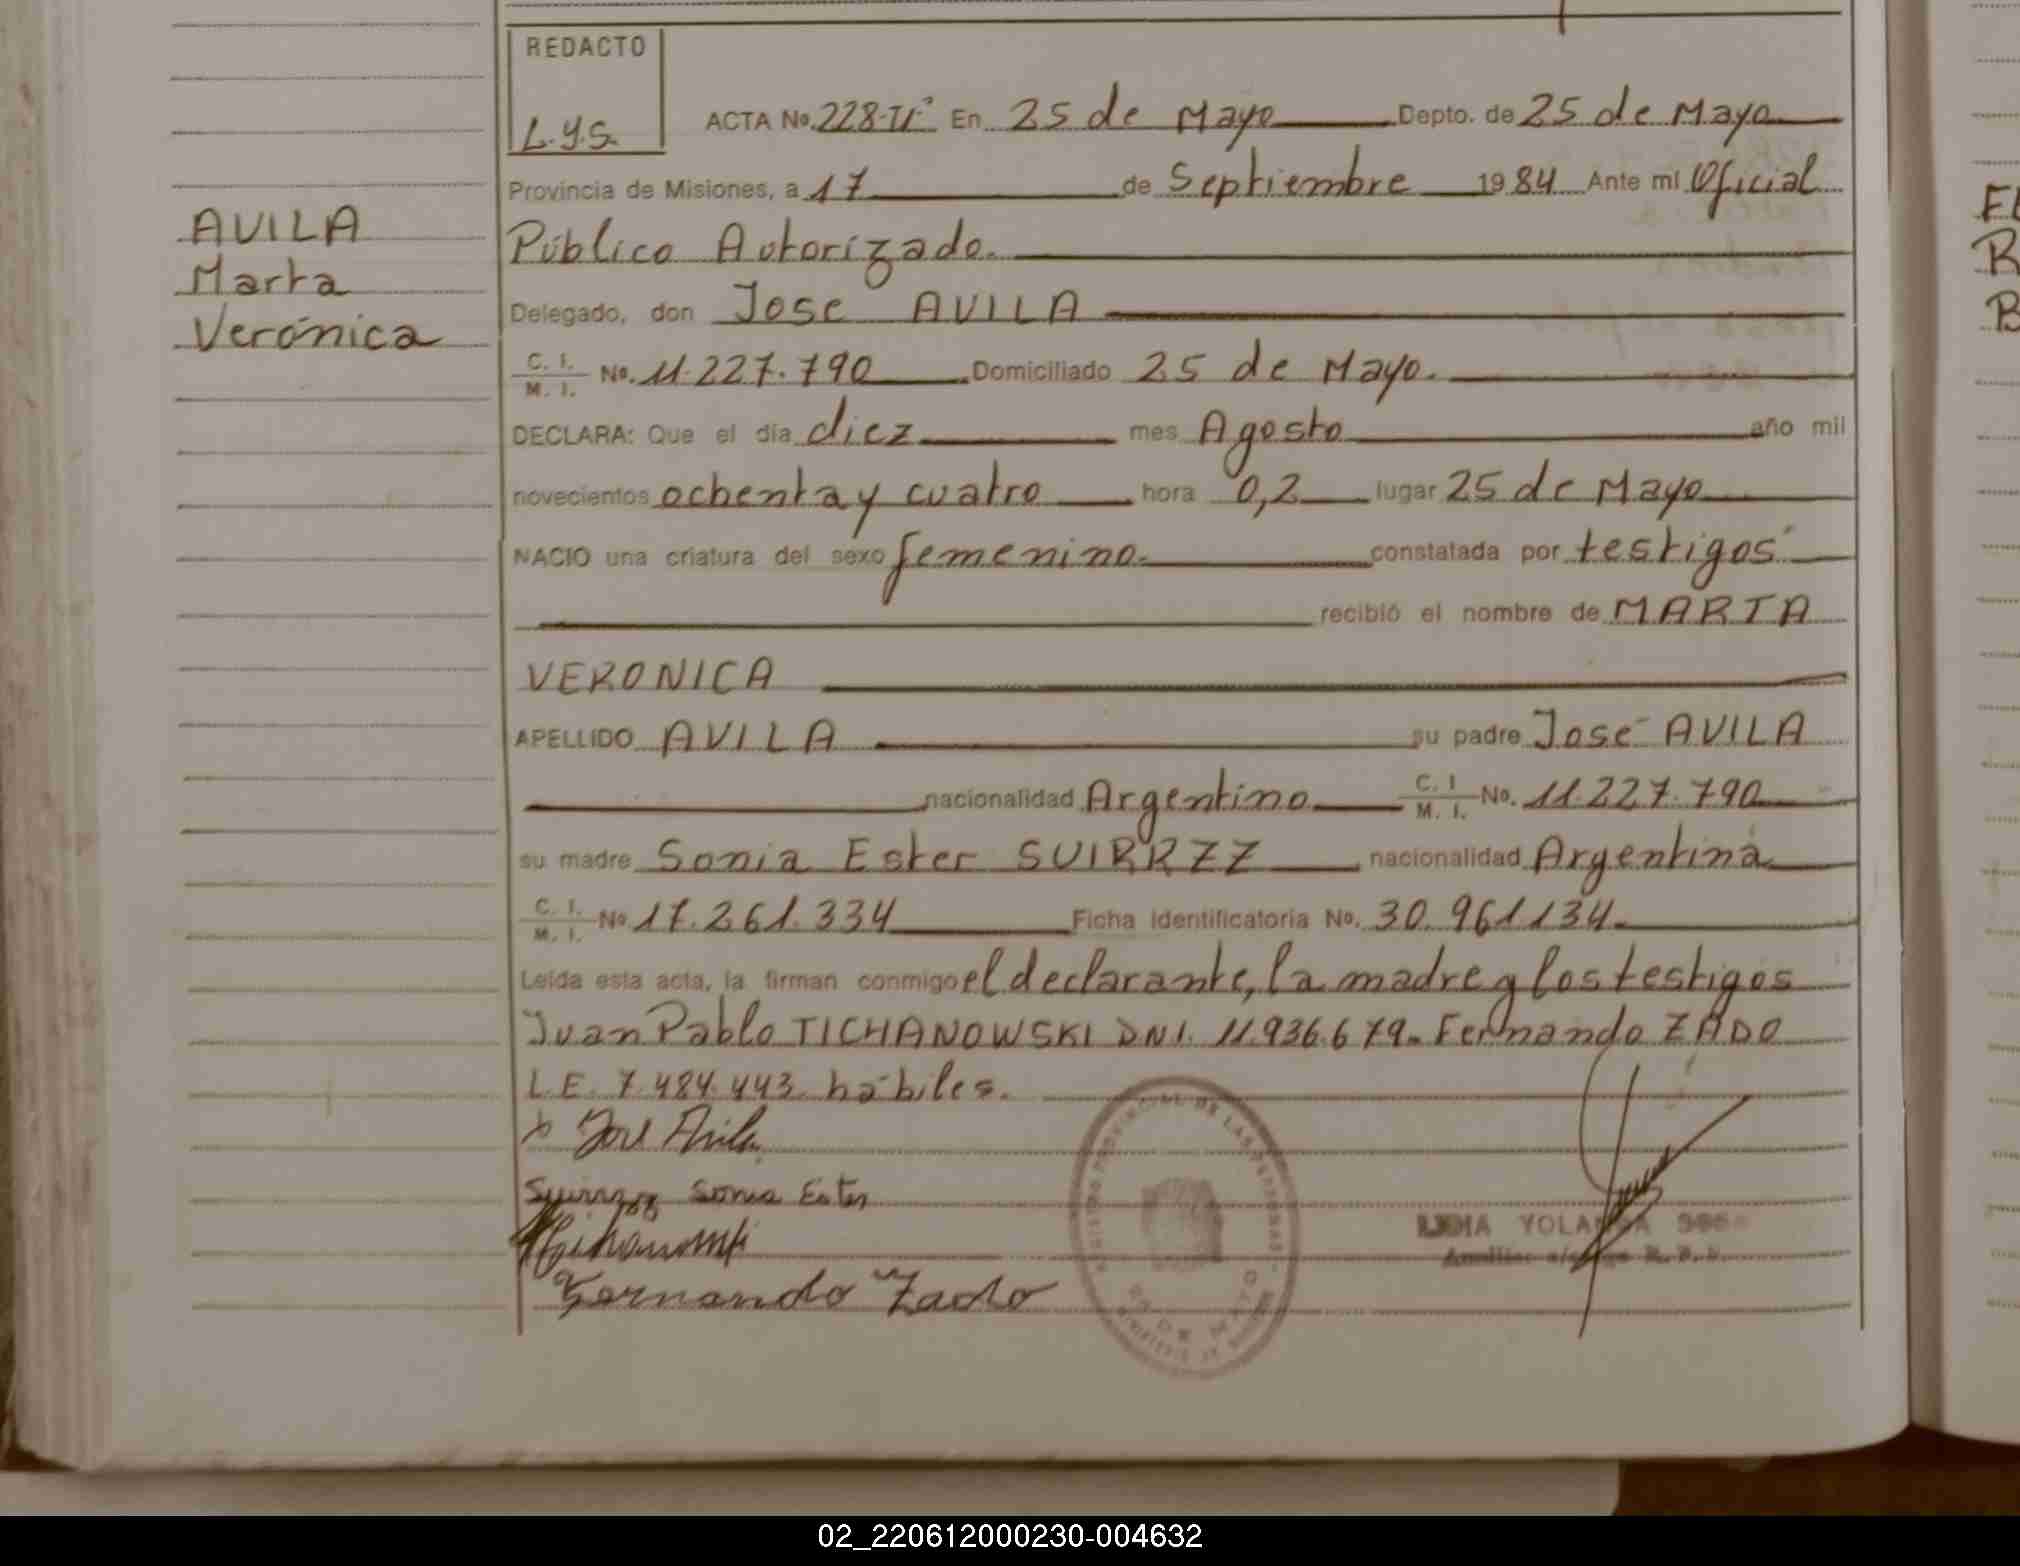 REDACTO
L.y.S.
ACTA No. 228-Tº En 25 de Mayo Depto. de 25 de Mayo
Provincia de Misiones, a 17 de Septiembre 1984 Ante mi Oficial
Público Autorizado.
Delegado, don Jose AVILA
C. I. / M. I. No. 11.227.790 Domiciliado 25 de Mayo.
DECLARA: Que el día diez mes Agosto año mil
novecientos ochenta y cuatro hora 0,2 lugar 25 de Mayo
NACIO una criatura del sexo femenino. constatada por testigos
recibió el nombre de MARTA
VERONICA
APELLIDO AVILA su padre José AVILA
nacionalidad Argentino C. I / M. I. No. 11.227.790
su madre Sonia Ester SUIRRZZ nacionalidad Argentina
C. I. / M. I. No 17.261.334 Ficha identificatoria No. 30.961134.
Leída esta acta, la firman conmigo el declarante, la madre y los testigos
Juan Pablo TICHANOWSKI DNI. 11.936.679. Fernando ZADO
L.E. 7.484.443. hábiles.
x José Avila
Sonia Ester
Fernando Zado
YOLANDA
AVILA
Marta
Verónica
02_220612000230-004632